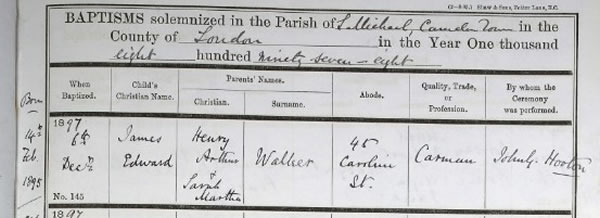 BAPTISMS solemnized in the Parish of St. Michael, Camden Town in the
County of London in the Year One thousand
eight hundred ninety seven – eight
When Baptized.
Child's Christian Name.
Parents' Names.
Christian.
Surname.
Abode.
Quality, Trade, or Profession.
By whom the Ceremony was performed.
Born
14th
Feb.
1895
1897
6th
Decr
No. 145
James
Edward
Henry
Arthur
&
Sarah
Martha
Walker
45
Caroline
St.
Carman
John G. Hooton
1897